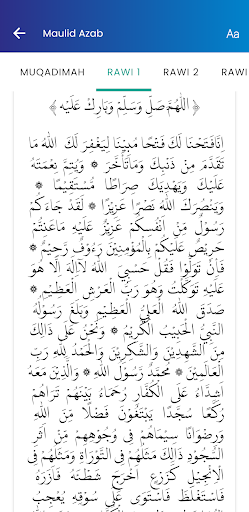 Maulid Azab
Aa
MUQADIMAH RAWI 1 RAWI 2 RAWI
﴿ اَللّٰهُمَّ صَلِّ وَسَلِّمْ وَبَارِكْ عَلَيْه ﴾
اِنَّافَتَحْنَا لَكَ فَتْحًا مُبِيْنًا لِيَغْفِرَ لَكَ اللهُ مَا
تَقَدَّمَ مِنْ ذَنْبِكَ وَمَاتَأَخَّرَ * وَيُتِمَّ نِعْمَتَهُ
عَلَيْكَ وَيَهْدِيَكَ صِرَاطًا مُسْتَقِيْمًا *
وَيَنْصُرَكَ اللهُ نَصْرًا عَزِيْزًا * لَقَدْ جَاءَكُمْ
رَسُوْلٌ مِنْ اَنْفُسِكُمْ عَزِيْزٌ عَلَيْهِ مَاعَنِتُّمْ
حَرِيْصٌ عَلَيْكُمْ بِالْمُؤْمِنِيْنَ رَءُوْفٌ رَحِيْمٌ *
فَإِنْ تَوَلَّوْا فَقُلْ حَسْبِيَ اللهُ لَاإِلٰهَ اِلَّا هُوَ
عَلَيْهِ تَوَكَّلْتُ وَهُوَ رَبُّ الْعَرْشِ الْعَظِيْمِ *
صَدَقَ اللهُ الْعَلِيُّ الْعَظِيْمُ وَبَلَّغَ رَسُوْلُهُ
النَّبِيُّ الْحَبِيْبُ الْكَرِيْمُ * وَنَحْنُ عَلَى ذَالِكَ
مِنَ الشّٰهِدِيْنَ وَالشّٰكِرِيْنَ وَالْحَمْدُ لِلّٰهِ رَبِّ
الْعَالَمِيْنَ * مُحَمَّدٌ رَسُوْلُ اللهِ * وَالَّذِيْنَ مَعَهُ
اَشِدَّاءُ عَلَى الْكُفَّارِ رُحَمَاءُ بَيْنَهُمْ تَرَاهُمْ
رُكَّعًا سُجَّدًا يَبْتَغُوْنَ فَضْلًا مِنَ اللهِ
وَرِضْوَانًا سِيْمَاهُمْ فِي وُجُوْهِهِمْ مِنْ اَثَرِ
السُّجُوْدِ ذَالِكَ مَثَلُهُمْ فِي التَّوْرَاةِ وَمَثَلُهُمْ فِي
الْاِنْجِيْلِ كَزَرْعٍ اَخْرَجَ شَطْئَهُ فَآزَرَهُ
فَاسْتَغْلَظَ فَاسْتَوَى عَلَى سُوْقِهِ يُعْجِبُ